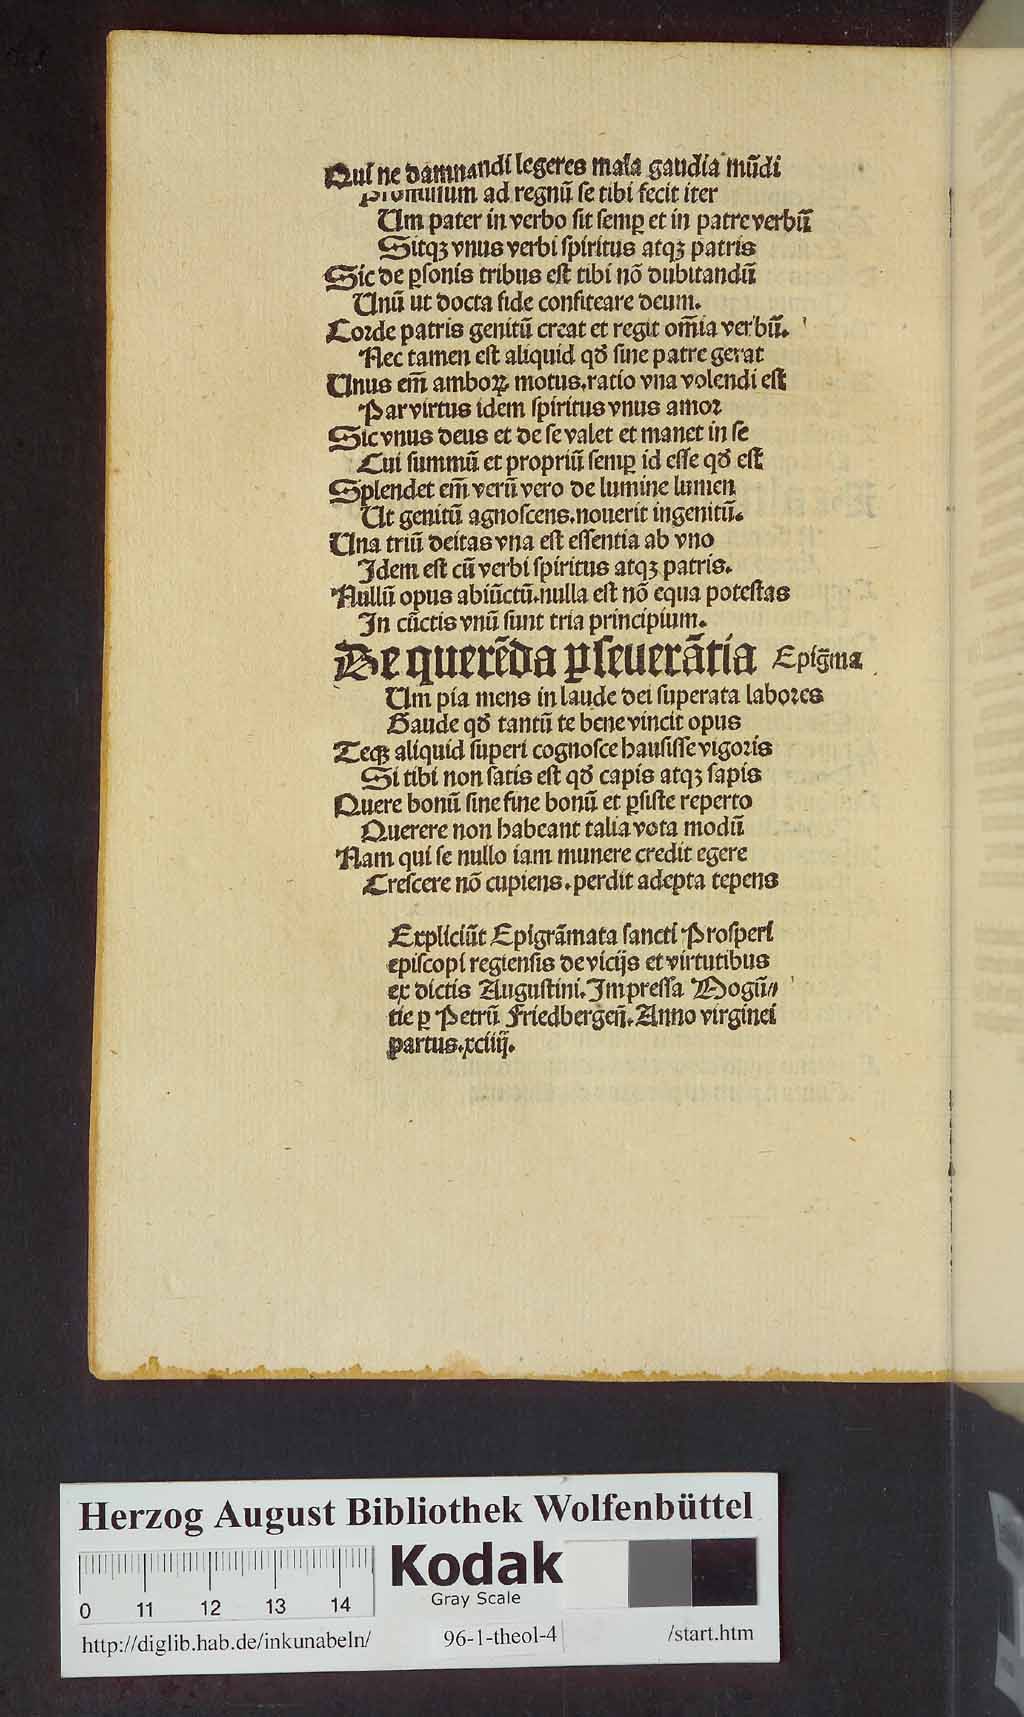 Qui ne damnandi legeres mala gaudia mũdi
Promissum ad regnũ se tibi fecit iter
Um pater in verbo sit semꝑ et in patre verbũ
Sitqꝫ vnus verbi spiritus atqꝫ patris
Sic de ꝑsonis tribus est tibi nõ dubitandũ
Unũ ut docta fide confiteare deum.
Corde patris genitũ creat et regit om̃ia verbũ.
Nec tamen est aliquid qđ sine patre gerat
Unus em̃ amboꝝ motus.ratio vna volendi est
Par virtus idem spiritus vnus amor
Sic vnus deus et de se valet et manet in se
Cui summũ et propriũ semꝑ id esse qđ est
Splendet em̃ verũ vero de lumine lumen
Ut genitũ agnoscens.nouerit ingenitũ.
Una triũ deitas vna est essentia ab vno
Idem est cũ verbi spiritus atqꝫ patris.
Nullũ opus abiũctũ.nulla est nõ equa potestas
In cũctis vnũ sunt tria principium.
De querẽda ꝑseuerãtia Epig̃ma
Um pia mens in laude dei superata labores
Gaude qđ tantũ te bene vincit opus
Teqꝫ aliquid superi cognosce hausisse vigoris
Si tibi non satis est qđ capis atqꝫ sapis
Quere bonũ sine fine bonũ et ꝑsiste reperto
Querere non habeant talia vota modũ
Nam qui se nullo iam munere credit egere
Crescere nõ cupiens.perdit adepta tepens
Expliciũt Epigrãmata sancti Prosperi
episcopi regiensis de vicijs et virtutibus
ex dictis Augustini.Impressa Mogũ⸗
tie ꝑ Petrũ Friedbergeñ.Anno virginei
partus.xciiij.
Herzog August Bibliothek Wolfenbüttel
Kodak
Gray Scale
0 11 12 13 14
http://diglib.hab.de/inkunabeln/ 96-1-theol-4 /start.htm